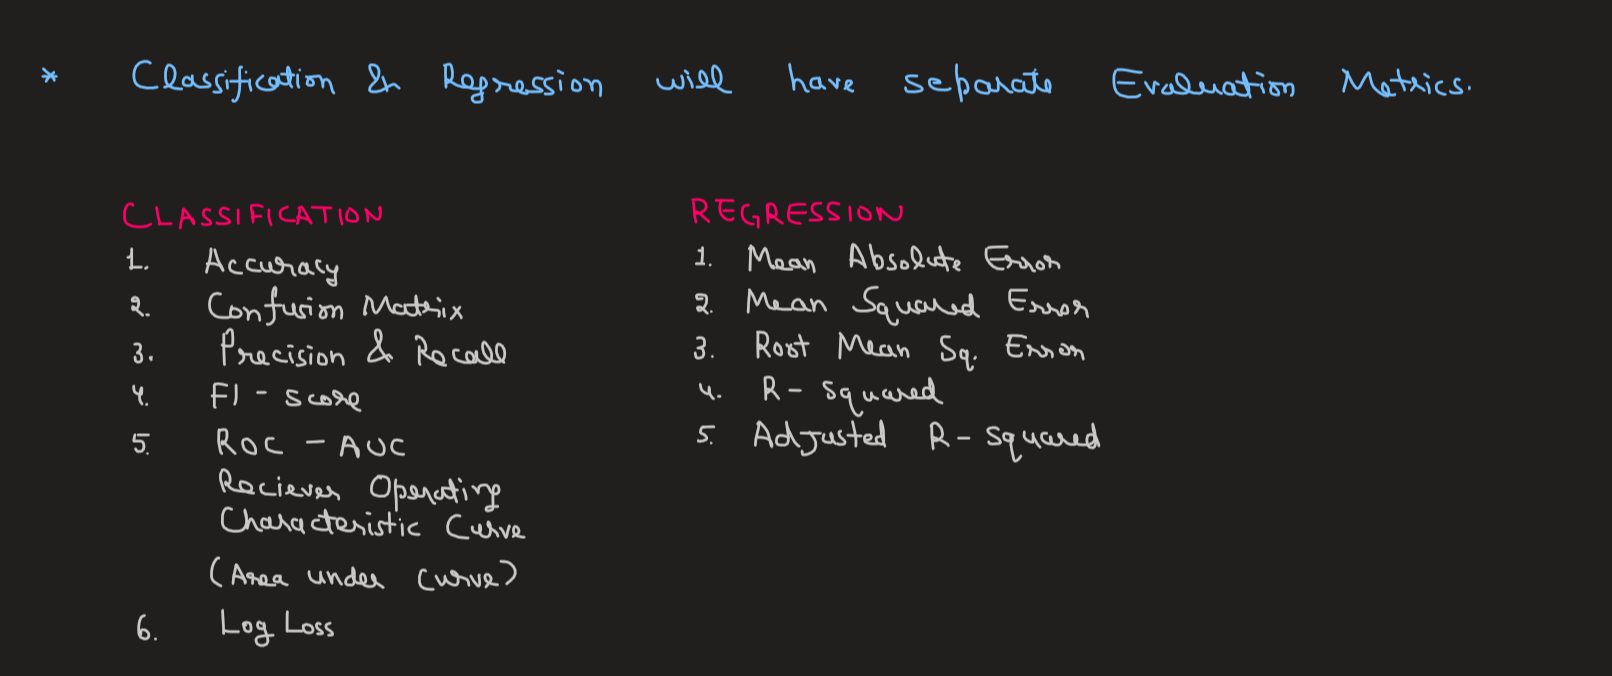 * Classification & Regression will have separate Evaluation Metrics.
CLASSIFICATION
1. Accuracy
2. Confusion Matrix
3. Precision & Recall
4. F1 - score
5. ROC - AUC
Reciever Operating
Characteristic Curve
(Area under curve)
6. Log Loss
REGRESSION
1. Mean Absolute Error
2. Mean Squared Error
3. Root Mean Sq. Error
4. R - squared
5. Adjusted R - squared